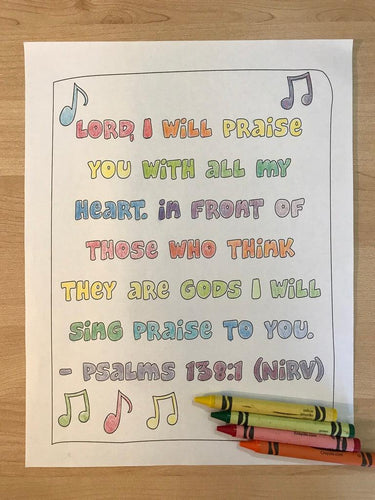 LORD, I WILL PRAISE
YOU WITH ALL MY
HEART. IN FRONT OF
THOSE WHO THINK
THEY ARE GODS I WILL
SING PRAISE TO YOU.
- PSALMS 138:1 (NIRV)